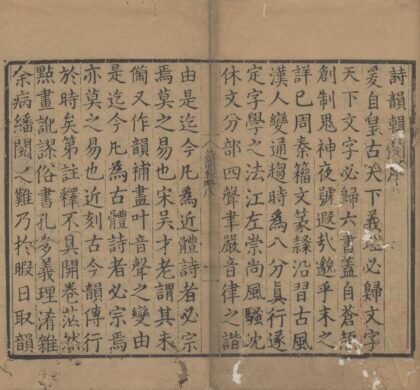 詩韻輯略序
爰自皇古天下義理必歸文字
天下文字必歸六書蓋自蒼頡
創制鬼神夜號遐㢤邈乎末之
詳已周秦籀文篆隸沿習古風
漢人變通趨時為八分真行遂
定字學之法江左崇尚風騷沈
休文分部四聲聿嚴音律之諧
由是迄今凡為近體詩者必宗
焉莫之易也宋吳才老謂其未
備又作韻補盡叶音聲之變由
是迄今凡為古體詩者必宗焉
亦莫之易也近刻古今韻傳行
於時矣第註釋不具開卷茫然
點畫訛謬俗書孔多義理淆雜
余病繙閱之難乃於暇日取韻